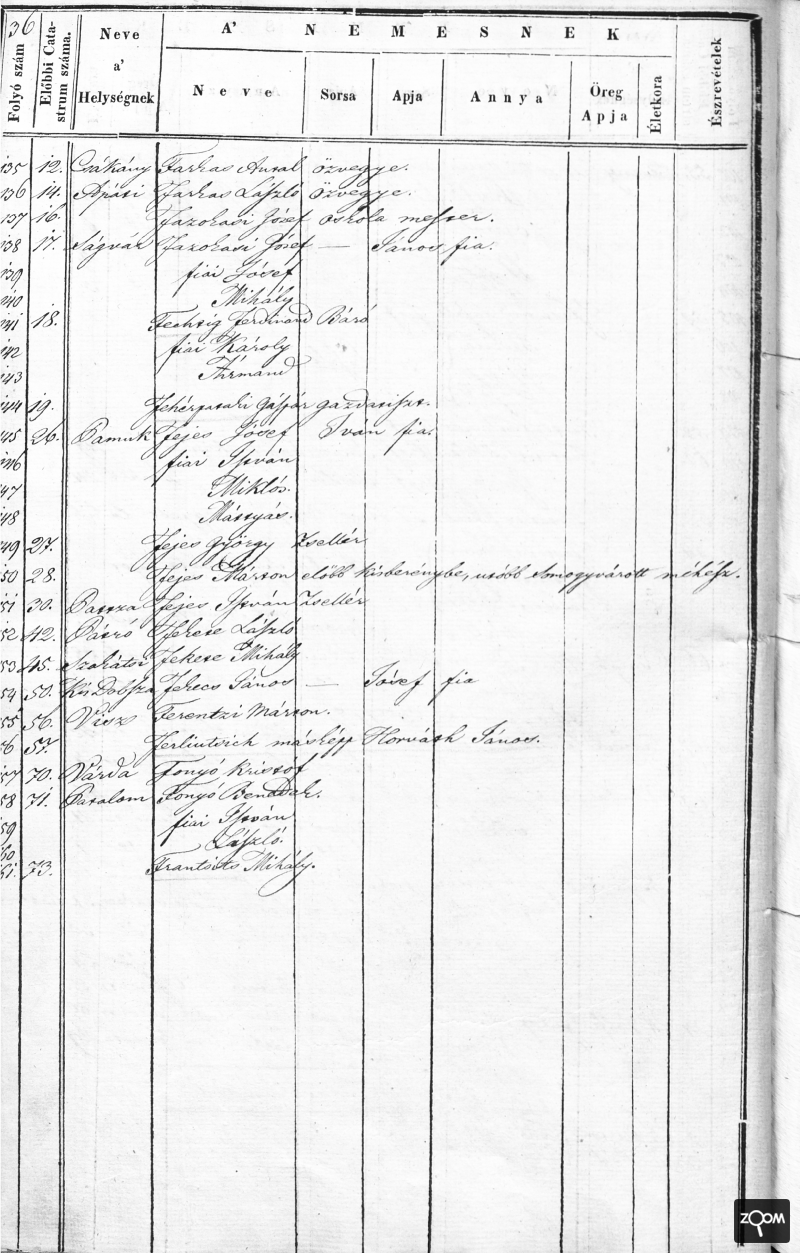 36
A' NEMESNEK
Folyó szám | Előbbi Catastrum száma. | Neve a' Helységnek | Neve | Sorsa | Apja | Annya | Öreg Apja | Életkora | Észrevételek
135 12. Csákány Farkas Antal özvegye.
136 14. Apáti Farkas László özvegye.
137 16. Fazokasi Jósef oskola mester.
138 17. Ságvár Fazokasi Jósef — János fia.
139 fiai Jósef
140 Mihály
141 18. Fechtig Ferdinand Báró
142 fiai Károly
143 Ármand
144 19. Fehérpataki Gáspár gazdatiszt.
45 26. Pamuk Fejes Jósef Iván fia.
46 fiai István
47 Miklós.
48 Mátyás.
49 27. Fejes György Zsellér
50 28. Fejes Márton előbb kisberénybe, utóbb Somogyvárott méhész.
51 30. Pattza Fejes István Zsellér
52 42. Patró Fekete László
53 45. Fekete Mihály
54 50. Kis Dobsza Ferecs János — Jósef fia
55 56. Visz Ferentzi Márton.
56 57. másképp Horváth János.
57 70. Várda Fonyó Kristóf
58 71. Patalom Fonyó Benedek.
59 fiai István
60 László.
61. 73. Frantsits Mihály.
ZOOM